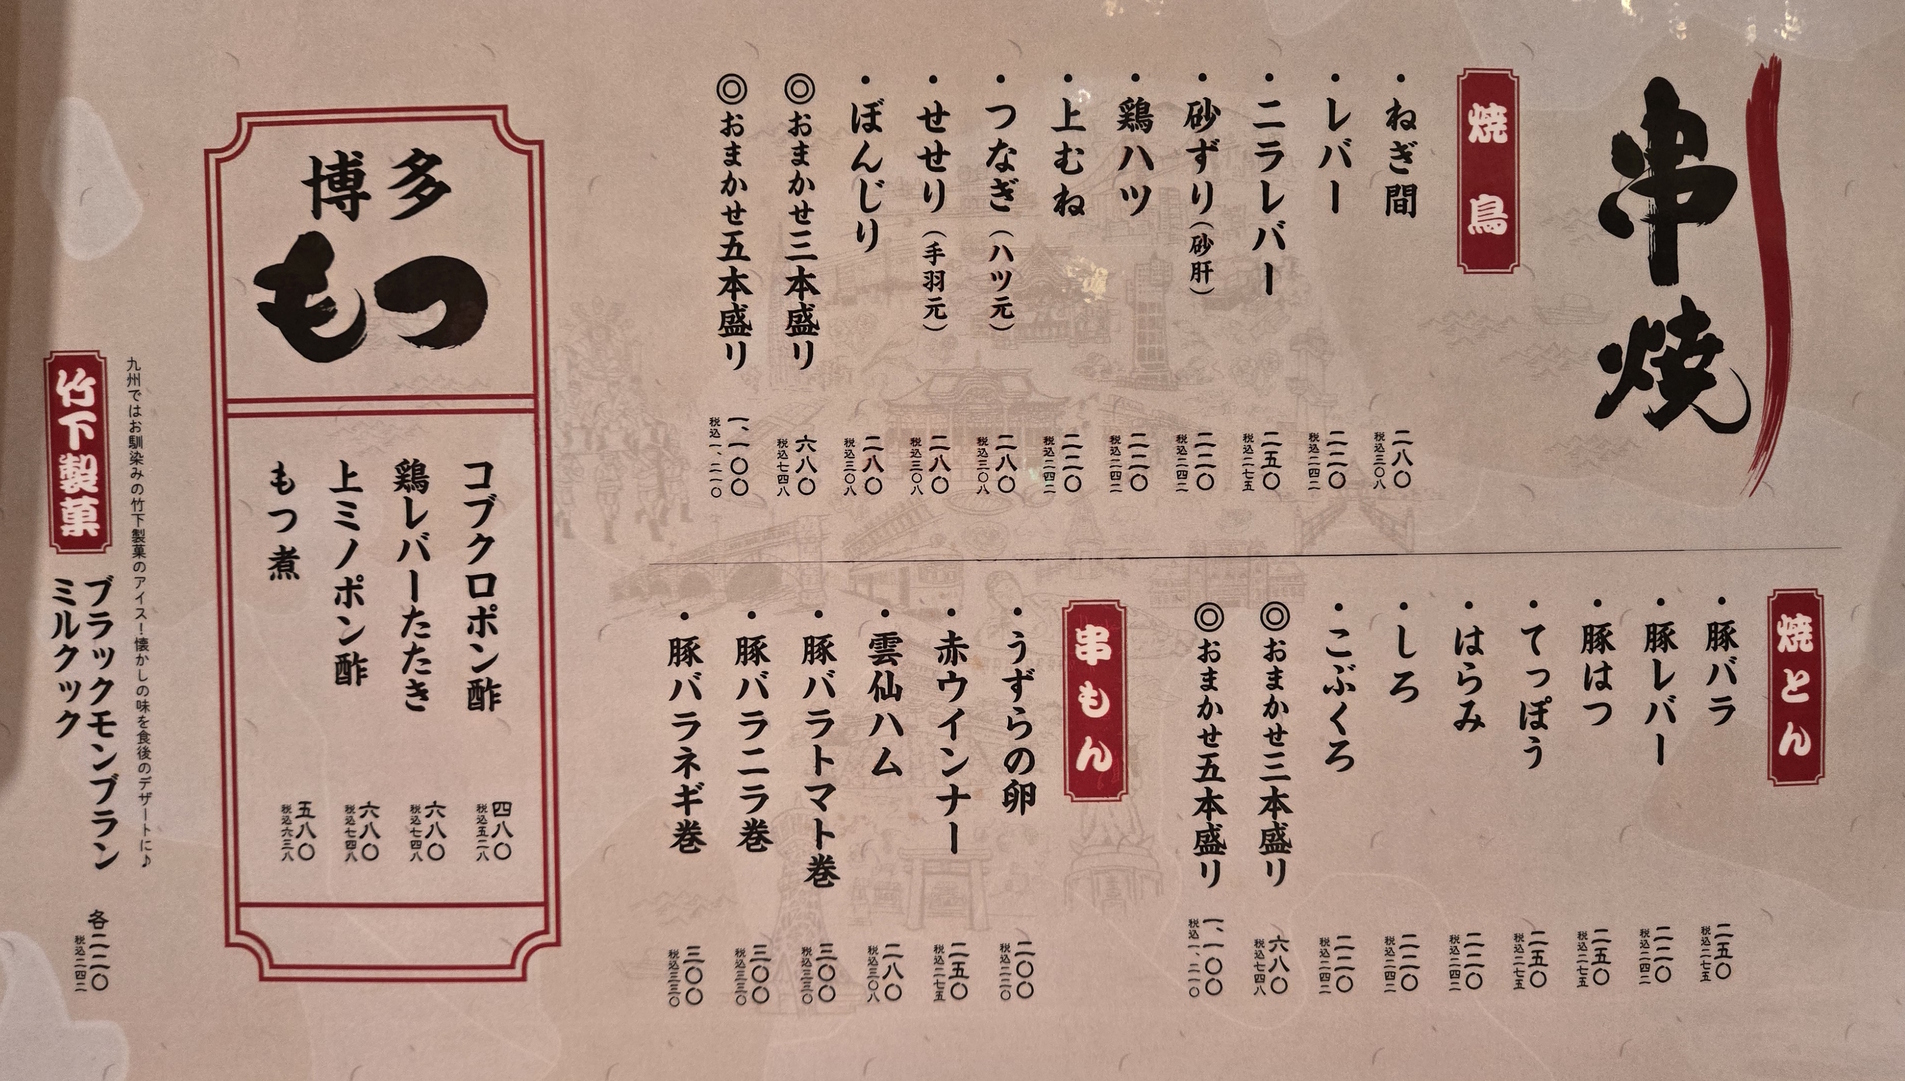 串焼
焼鳥
・ねぎ間 二八〇 税込三〇八
・レバー 二二〇 税込二四二
・ニラレバー 二五〇 税込二七五
・砂ずり（砂肝） 二二〇 税込二四二
・鶏ハツ 二二〇 税込二四二
・上むね 二二〇 税込二四二
・つなぎ（ハツ元） 二八〇 税込三〇八
・せせり（手羽元） 二八〇 税込三〇八
・ぼんじり 二八〇 税込三〇八
◎おまかせ三本盛り 六八〇 税込七四八
◎おまかせ五本盛り 一、一〇〇 税込一、二一〇
焼とん
・豚バラ 二五〇 税込二七五
・豚レバー 二二〇 税込二四二
・豚はつ 二五〇 税込二七五
・てっぽう 二五〇 税込二七五
・はらみ 二二〇 税込二四二
・しろ 二二〇 税込二四二
・こぶくろ 二二〇 税込二四二
◎おまかせ三本盛り 六八〇 税込七四八
◎おまかせ五本盛り 一、一〇〇 税込一、二一〇
串もん
・うずらの卵 二〇〇 税込二二〇
・赤ウインナー 二五〇 税込二七五
・雲仙ハム 二八〇 税込三〇八
・豚バラトマト巻 三〇〇 税込三三〇
・豚バラニラ巻 三〇〇 税込三三〇
・豚バラネギ巻 三〇〇 税込三三〇
博多
もつ
コブクロポン酢 四八〇 税込五二八
鶏レバーたたき 六八〇 税込七四八
上ミノポン酢 六八〇 税込七四八
もつ煮 五八〇 税込六三八
九州ではお馴染みの竹下製菓のアイス！懐かしの味を食後のデザートに♪
竹下製菓
ブラックモンブラン
ミルクック
各二二〇 税込二四二